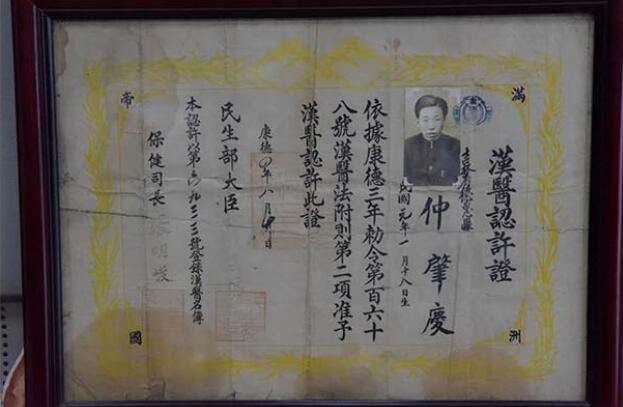 滿
洲
帝
國
漢醫認許證
仲肇慶
民國元年一月十八日生
依據康德三年勅令第百六十
八號漢醫法附則第二項准予
漢醫認許此證
康德 年八月 日
民生部大臣
本認許 第 九三三號登錄漢醫名簿
保健司長 張明峻